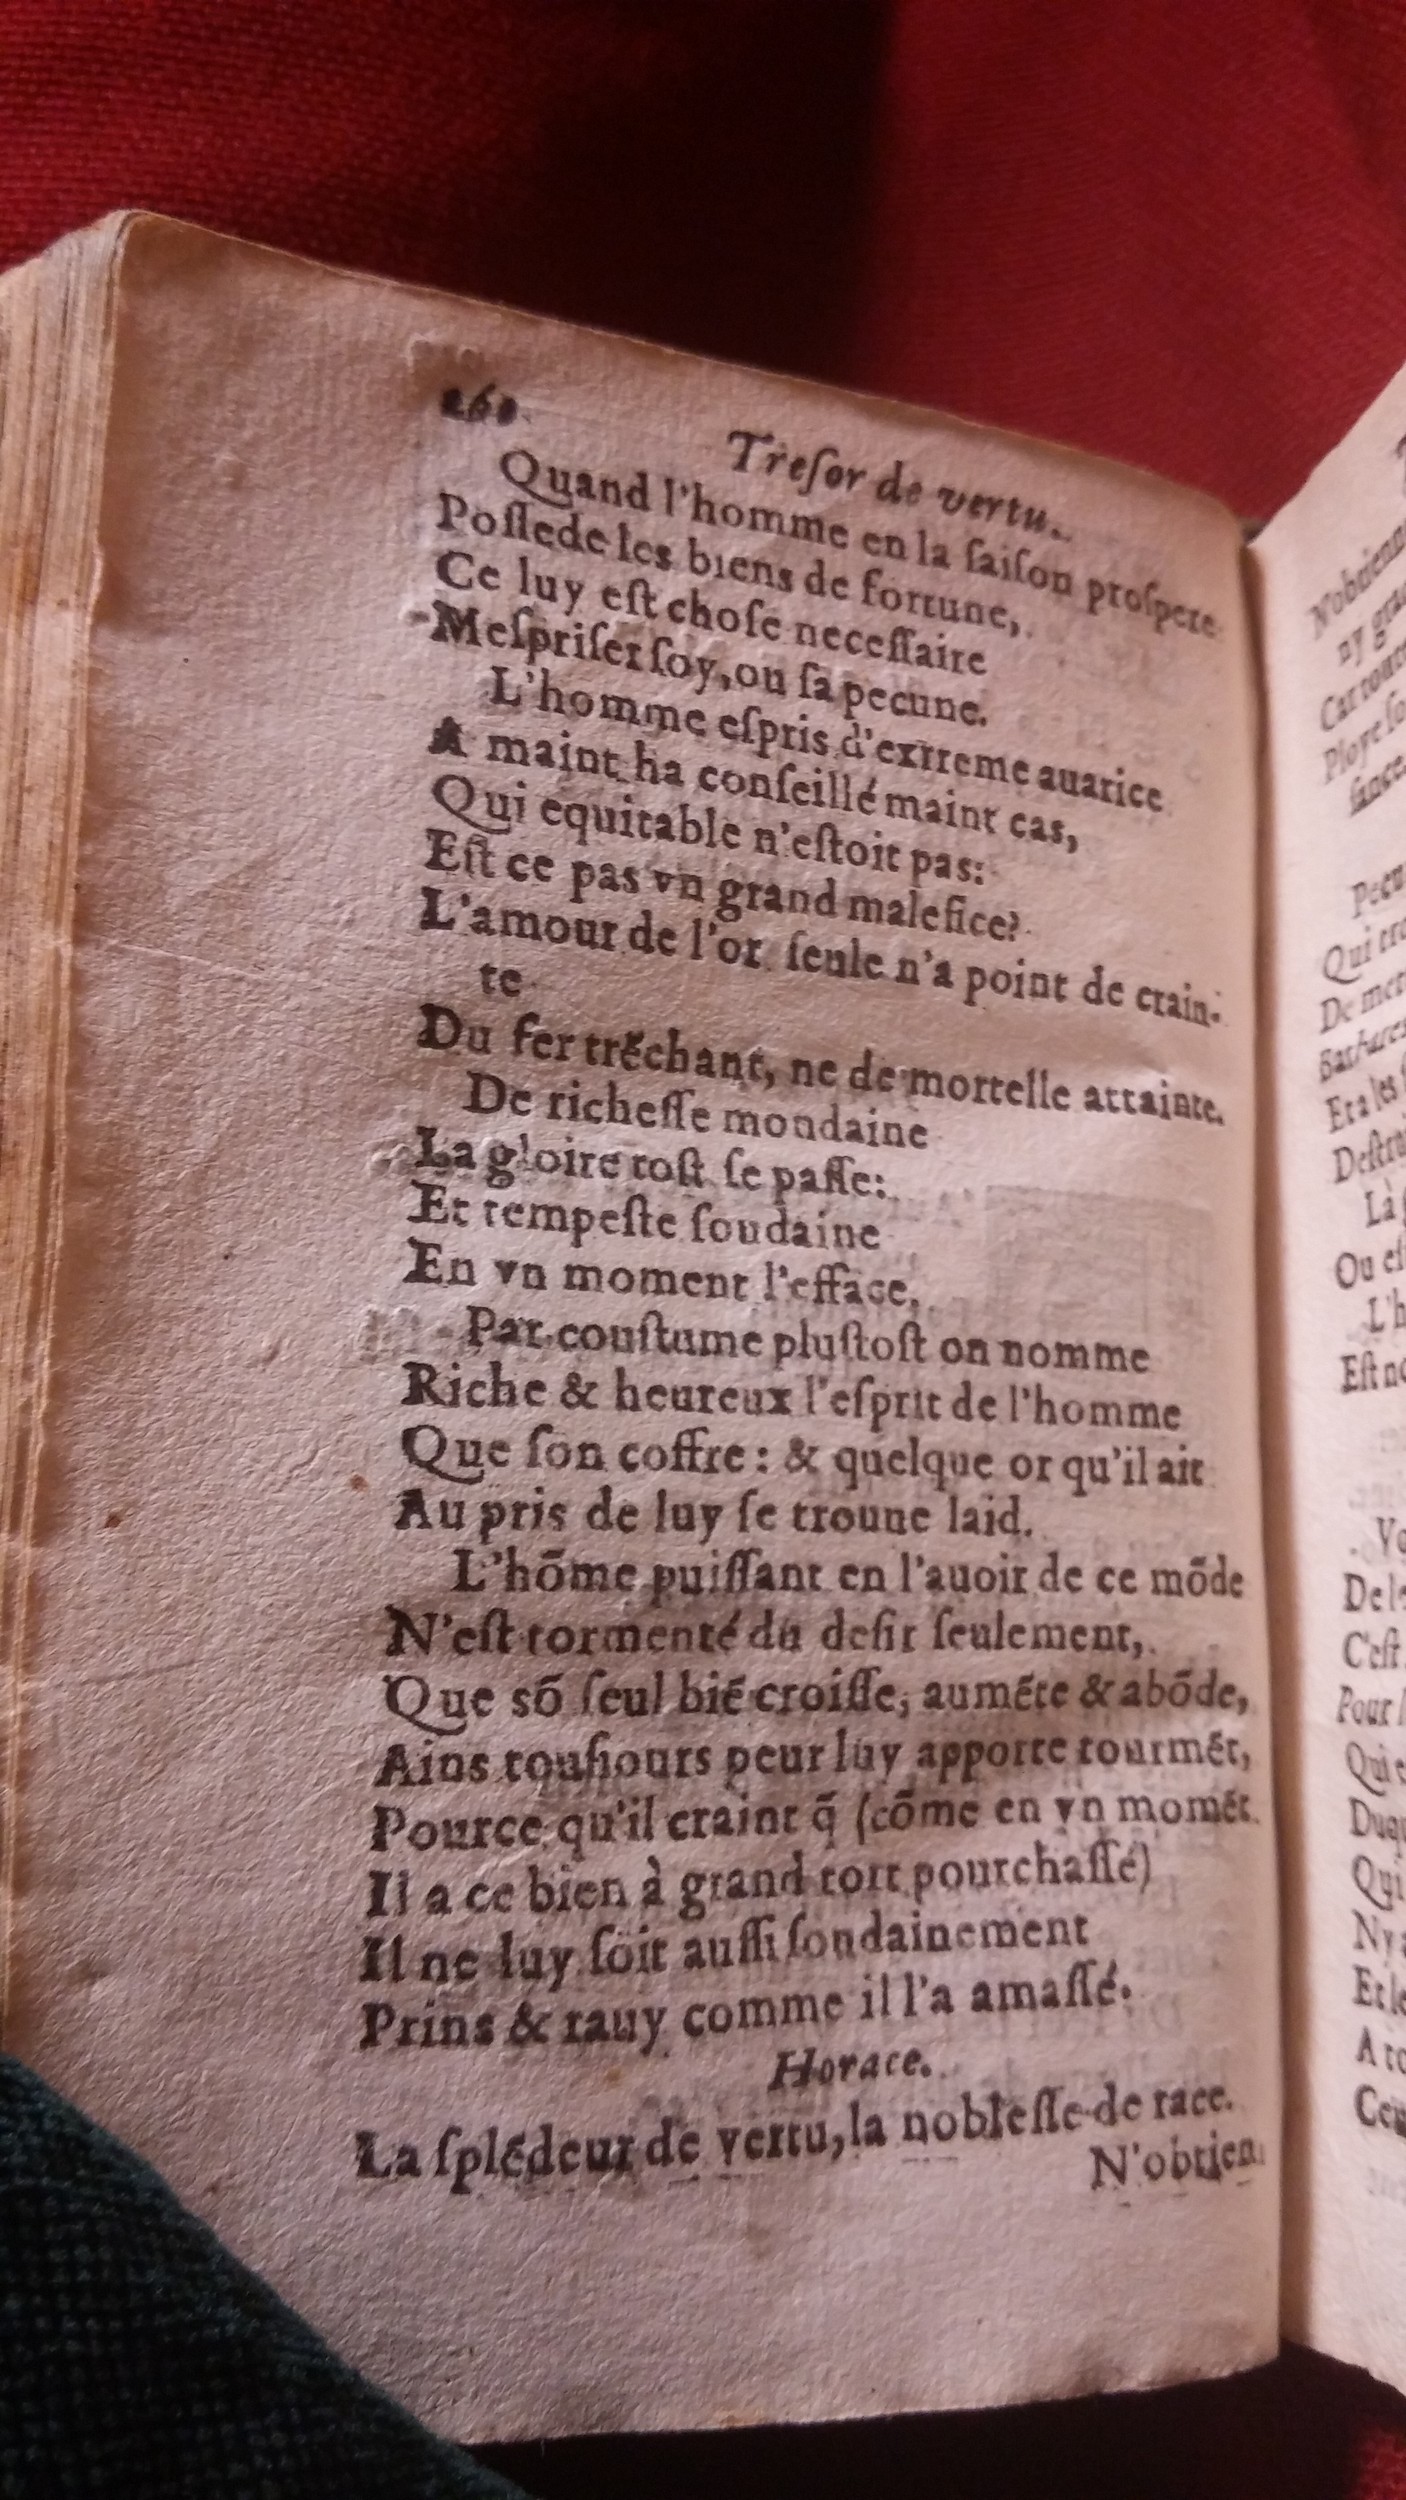 260
Tresor de vertu.
Quand l'homme en la saison prospere
Possede les biens de fortune,
Ce luy est chose necessaire
Mespriser soy, ou sa pecune.
L'homme espris d'extreme auarice
A maint ha conseillé maint cas,
Qui equitable n'estoit pas:
Est ce pas vn grand malefice?
L'amour de l'or seule n'a point de crain-
te
Du fer trēchant, ne de mortelle attainte.
De richesse mondaine
La gloire tost se passe:
Et tempeste soudaine
En vn moment l'efface.
Par coustume plustost on nomme
Riche & heureux l'esprit de l'homme
Que son coffre: & quelque or qu'il ait
Au pris de luy se trouue laid.
L'hōme puissant en l'auoir de ce mōde
N'est tormenté du desir seulement,
Que sō seul biē croisse, aumēte & abōde,
Ains tousiours peur luy apporte tourmēt,
Pource qu'il craint q̃ (cōme en vn momēt
Il a ce bien à grand tort pourchassé)
Il ne luy soit aussi soudainement
Prins & rauy comme il l'a amassé.
Horace.
La splēdeur de vertu, la noblesse de race.
N'obtien
ny
Ploye
Qui
De
Et a les
Là
Ou
L'h
C'est
Pour
Qui
Qui
Ny
A